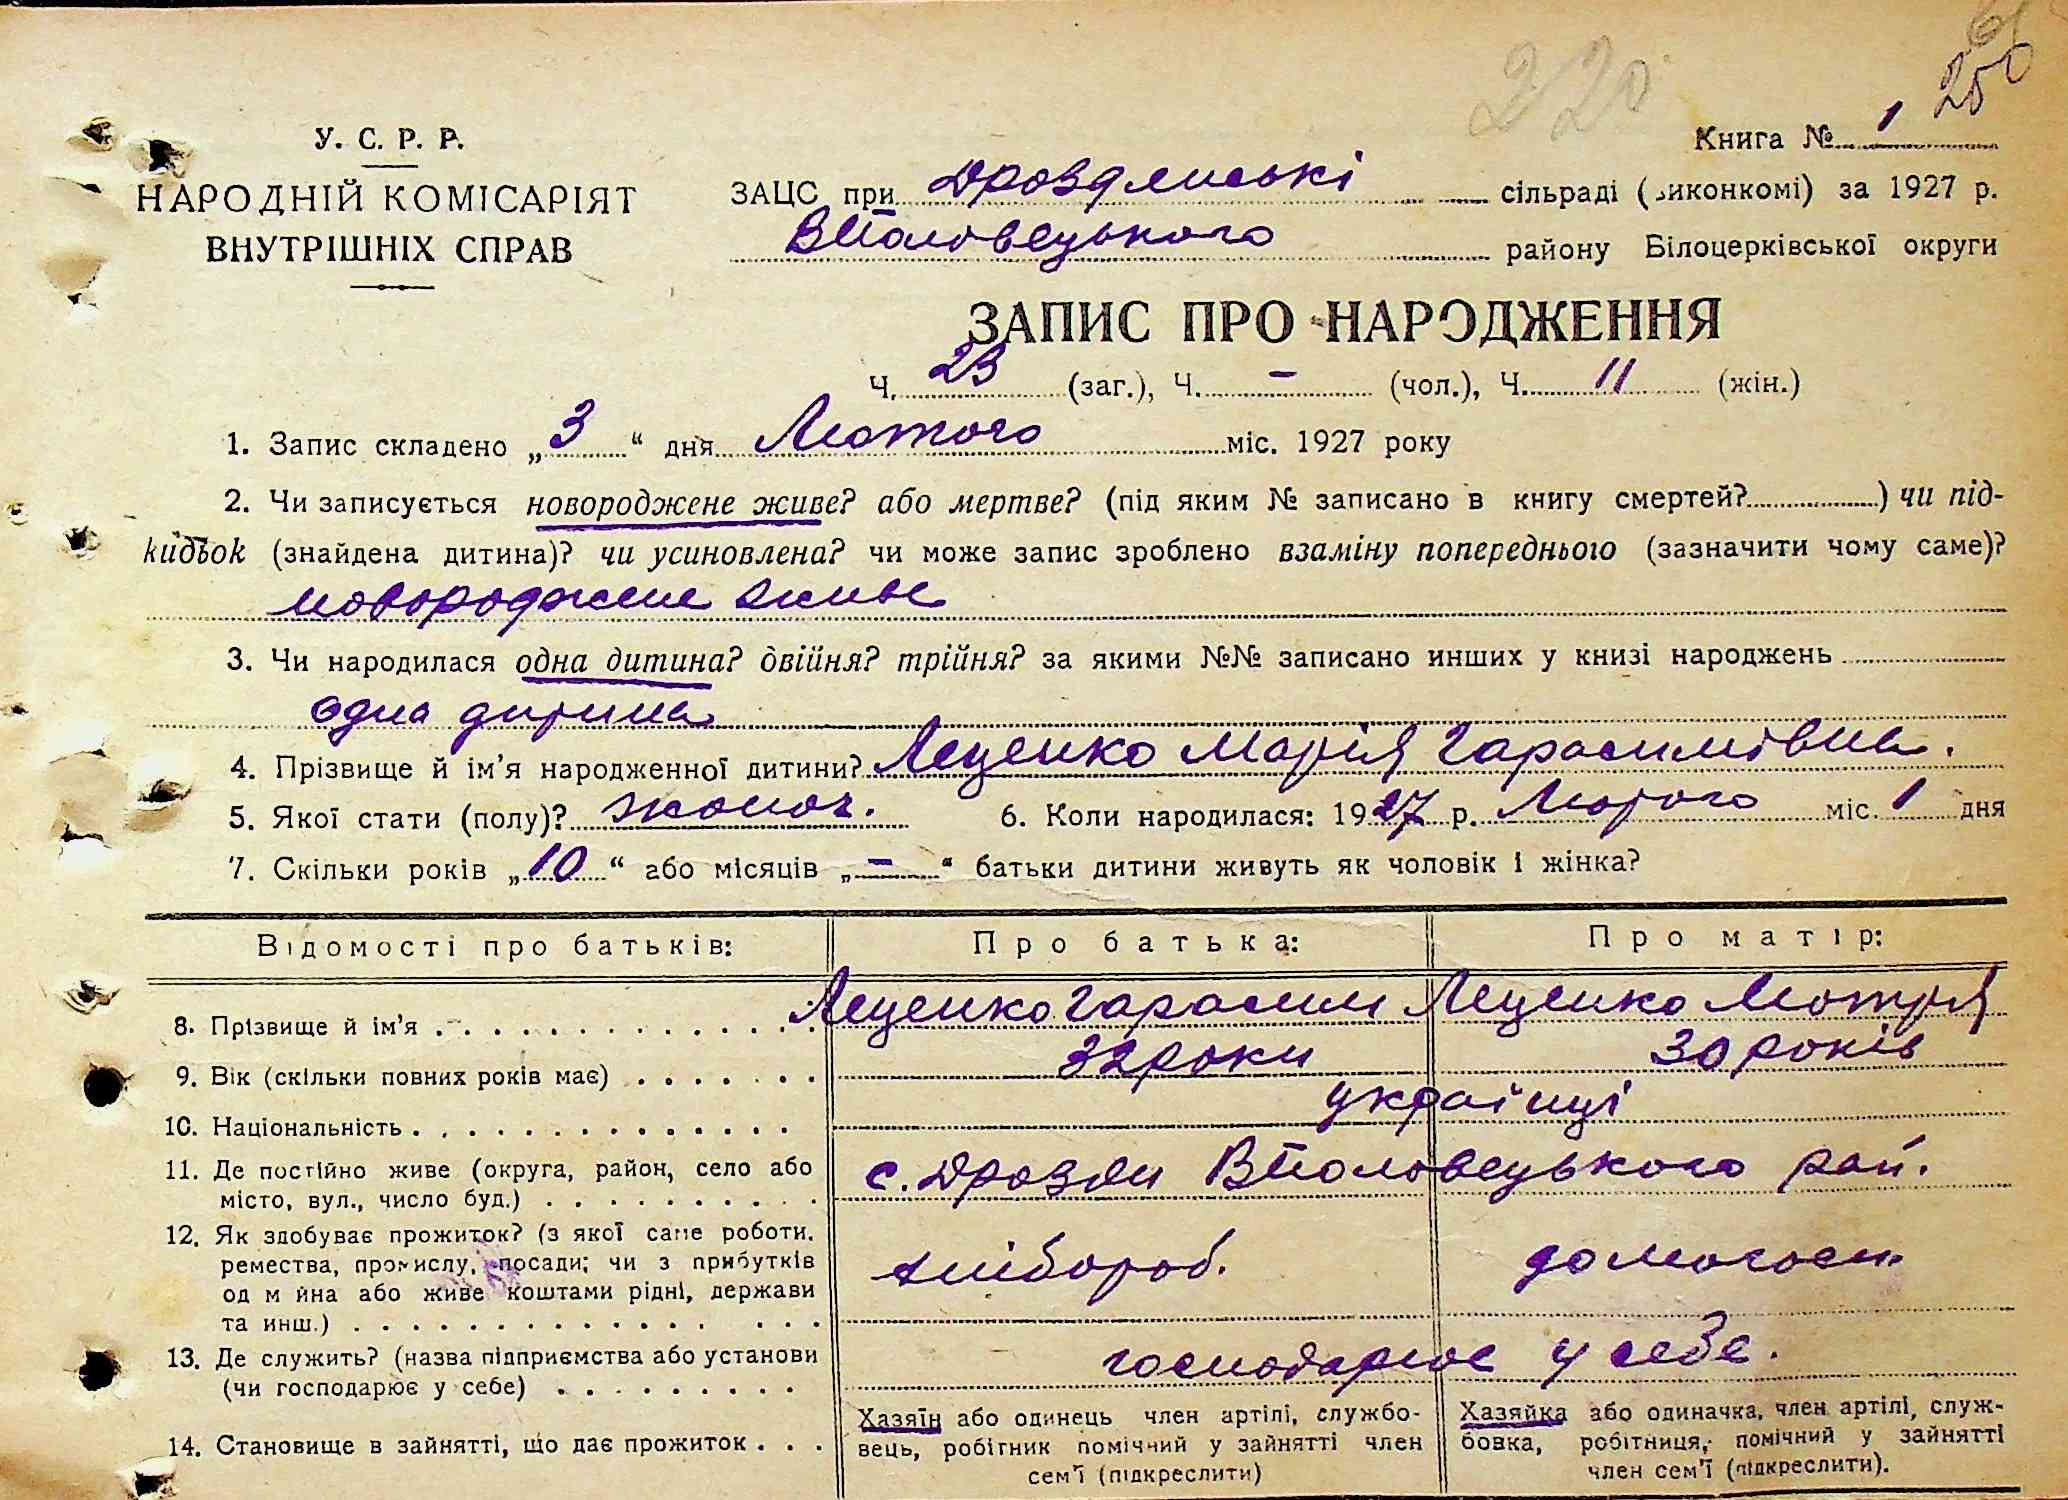 220
61
250
У. С. Р. Р.
НАРОДНІЙ КОМІСАРІЯТ
ВНУТРІШНІХ СПРАВ
Книга № 1
ЗАЦС при Дроздянські сільраді (виконкомі) за 1927 р.
ВПоловецького району Білоцерківської округи
ЗАПИС ПРО НАРОДЖЕННЯ
Ч. 23 (заг.), Ч. – (чол.), Ч. 11 (жін.)
1. Запис складено „3“ дня Лютого міс. 1927 року
2. Чи записується новороджене живе? або мертве? (під яким № записано в книгу смертей?) чи під-
кидьок (знайдена дитина)? чи усиновлена? чи може запис зроблено взаміну попереднього (зазначити чому саме)?
новороджене живе
3. Чи народилася одна дитина? двійня? трійня? за якими №№ записано инших у книзі народжень
одна дитина
4. Прізвище й ім’я народженної дитини? Леценко Марія Гарасимівна.
5. Якої стати (полу)? жоноч. 6. Коли народилася: 1927 р. Лютого міс. 1 дня
7. Скільки років „10“ або місяців „–“ батьки дитини живуть як чоловік і жінка?
Відомості про батьків: Про батька: Про матір:
8. Прізвище й ім’я Леценко Гарасим Леценко Мотря
9. Вік (скільки повних років має) 32 роки 30 років
10. Національність українці
11. Де постійно живе (округа, район, село або
місто, вул., число буд.) с. Дрозди ВПоловецького рай.
12. Як здобуває прожиток? (з якої саме роботи,
ремества, промислу, посади; чи з прибутків
од майна або живе коштами рідні, держави
та инш.) хлібороб. домогосп.
13. Де служить? (назва підприємства або установи
(чи господарює у себе) господарює у себе.
14. Становище в зайнятті, що дає прожиток
Хазяїн або одинець член артілі, службо-
вець, робітник помічний у зайнятті член
сем’ї (підкреслити)
Хазяйка або одиначка, член артілі, служ-
бовка, робітниця, помічний у зайнятті
член сем’ї (підкреслити).